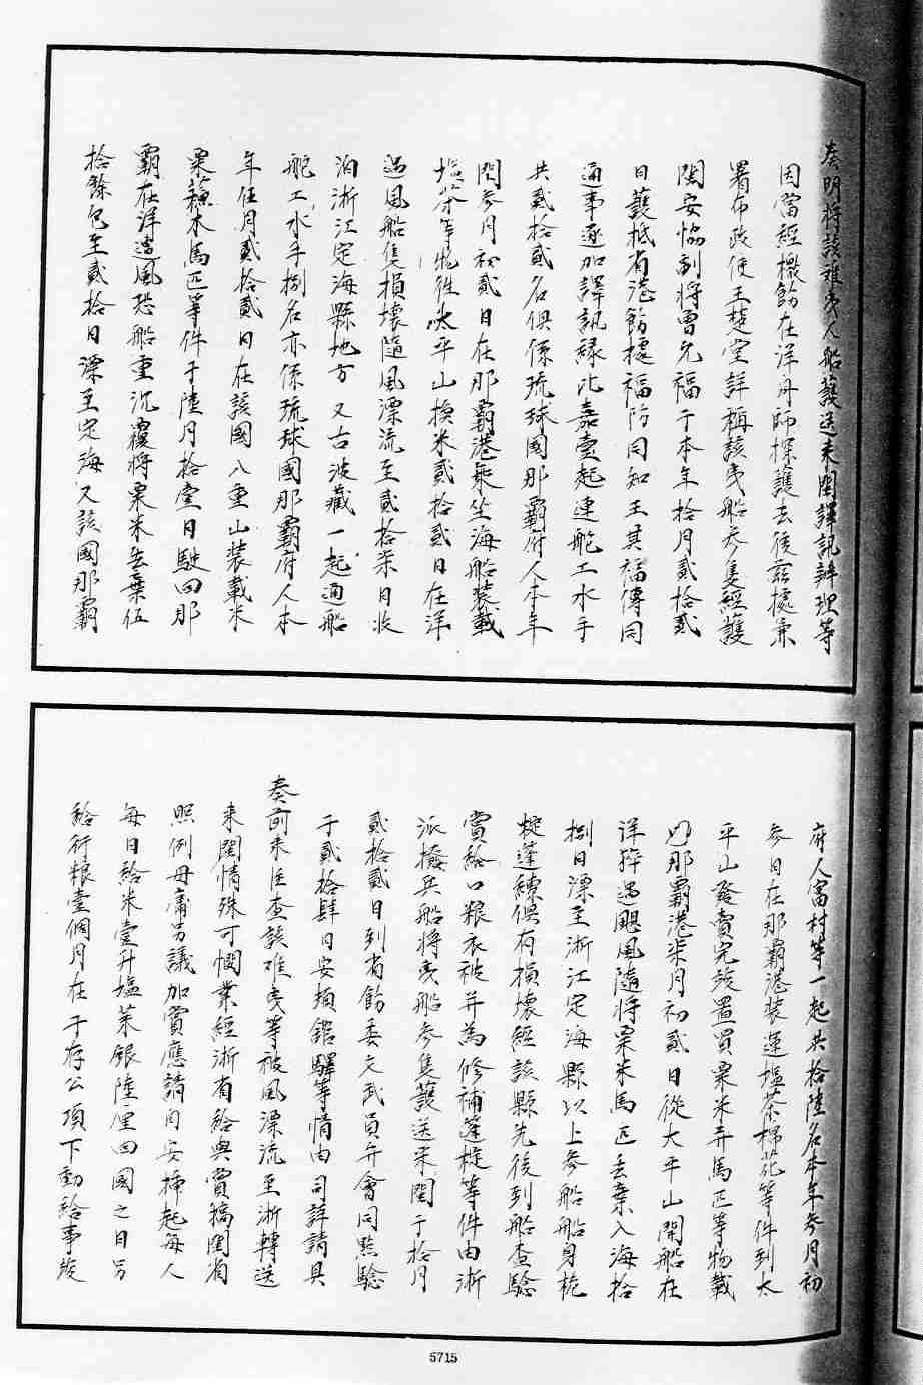 奏明將該難夷人船護送來閩譯訊辦理等
因當經檄飭在洋舟師探護去後茲據兼
署布政使王楚堂詳稱該夷船叁隻經護
閩安協副將曾允福于本年拾月貳拾貳
日護抵省港飭據福防同知王其福傳同
通事逐加譯訊緣比嘉壹起連舵工水手
共貳拾貳名俱係琉球國那霸府人本年
閏叁月初貳日在那霸港乘坐海船裝載
塩茶等物往太平山換米貳拾貳日在洋
遇風船隻損壞隨風漂流至貳拾柒日收
泊浙江定海縣地方又古波藏一起通船
舵工水手捌名亦係琉球國那霸府人本
年伍月貳拾貳日在該國八重山裝載米
粟蘓木馬匹等件于陸月拾壹日駛回那
霸在洋遭風恐船重沉覆將粟米丟棄伍
拾餘包至貳拾日漂至定海又該國那霸
府人富村等一起共拾陸名本年叁月初
叁日在那霸港裝運塩茶棉花等件到太
平山發賣完竣置買粟米并馬匹等物載
回那霸港柒月初貳日從太平山開船在
洋猝遇颶風隨將粟米馬匹丟棄入海拾
捌日漂至浙江定海縣以上叁船船身桅
椗蓬練俱有損壞經該縣先後到船查驗
賞給口粮衣被并為修補蓬椗等件由浙
派撥兵船將夷船叁隻護送來閩于拾月
貳拾貳日到省飭委文武員弁會同點驗
于貳拾肆日安頓館驛等情由司詳請具
奏前來臣查該难夷等被風漂流至浙轉送
來閩情殊可憫業經浙省給與賞犒閩省
照例毋庸另議加賞應請自安揷起每人
每日給米壹升塩菜銀陸厘回國之日另
給行粮壹個月在于存公項下動給事竣
5715